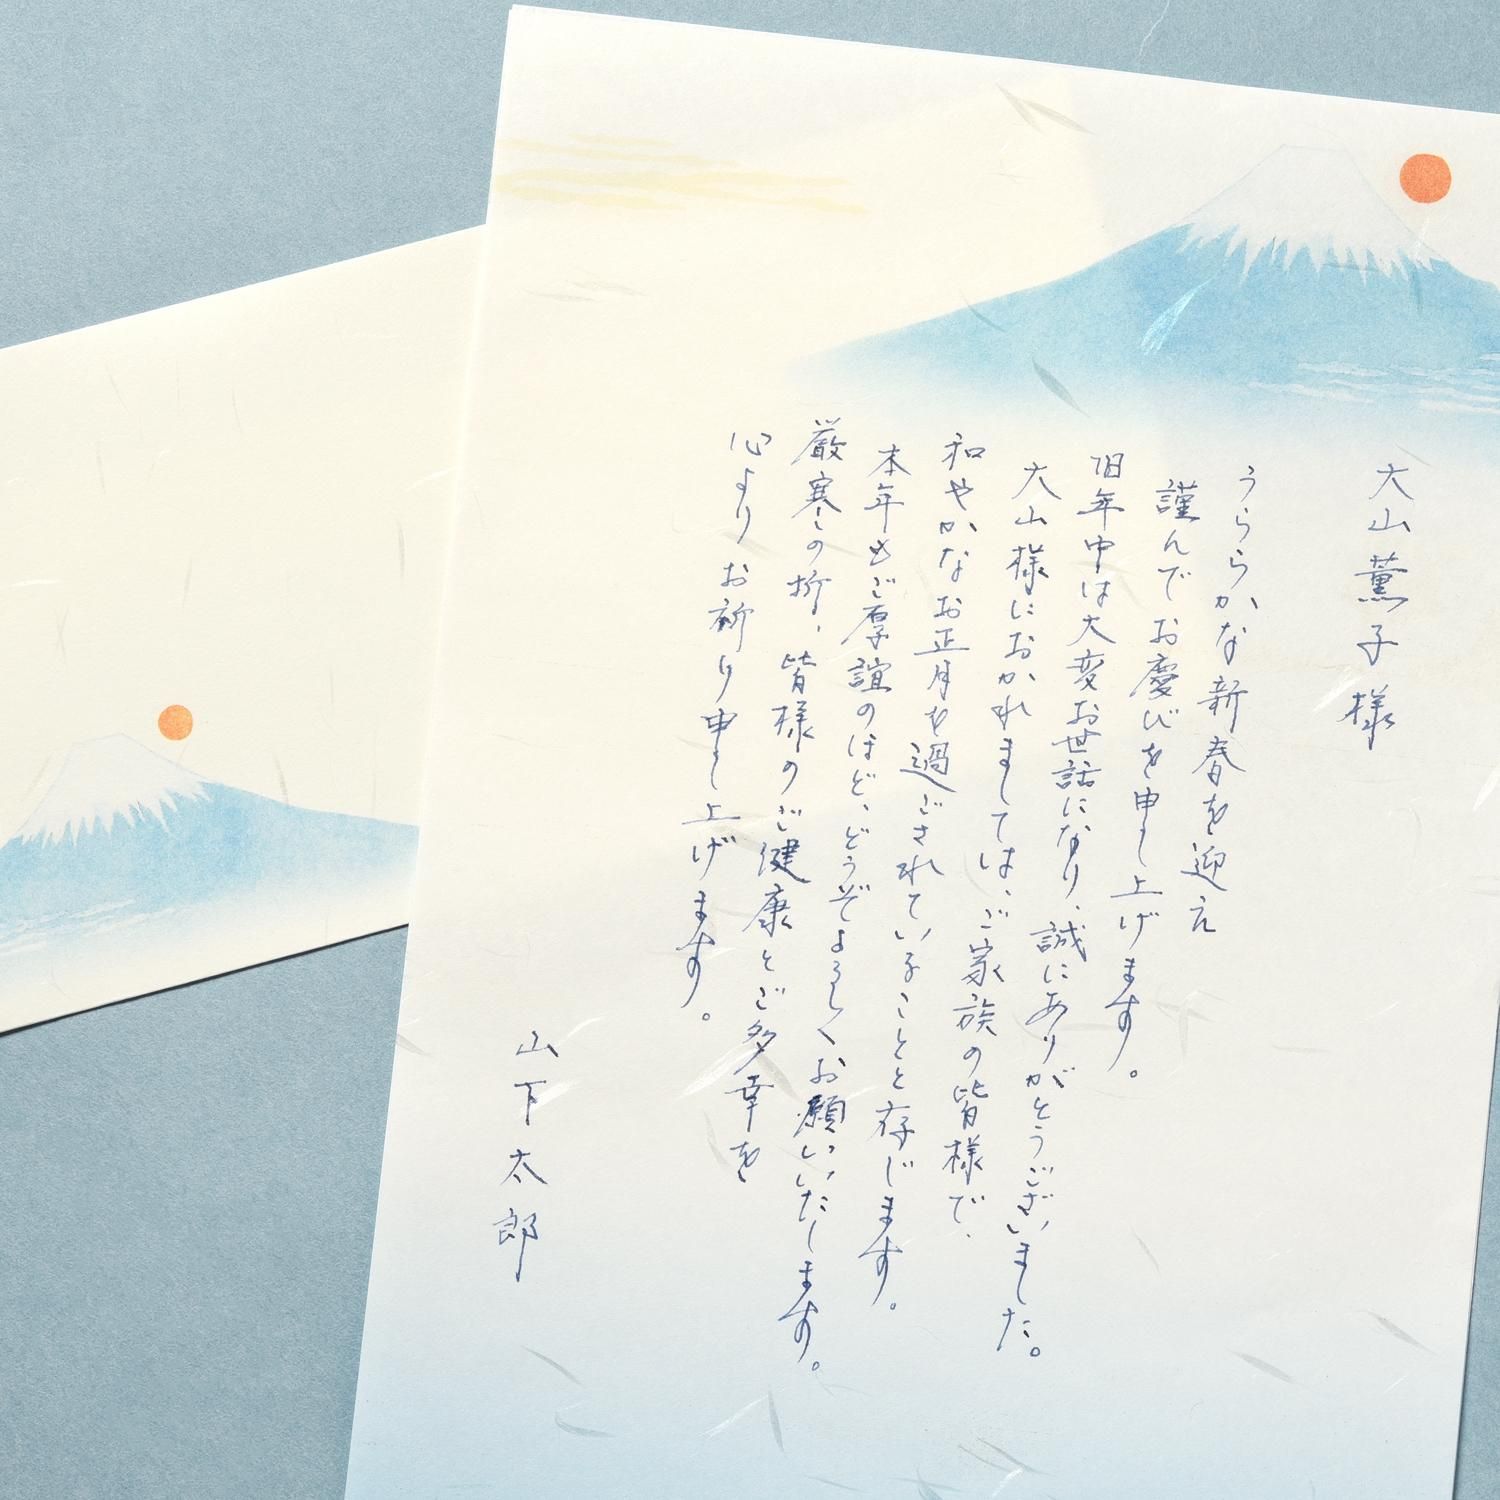 大山薫子様
うららかな新春を迎え
謹んでお慶びを申し上げます。
旧年中は大変お世話になり、誠にありがとうございました。
大山様におかれましては、ご家族の皆様で、
和やかなお正月を過ごされていることと存じます。
本年もご厚誼のほど、どうぞよろしくお願いいたします。
厳寒の折、皆様のご健康とご多幸を
心よりお祈り申し上げます。
山下太郎